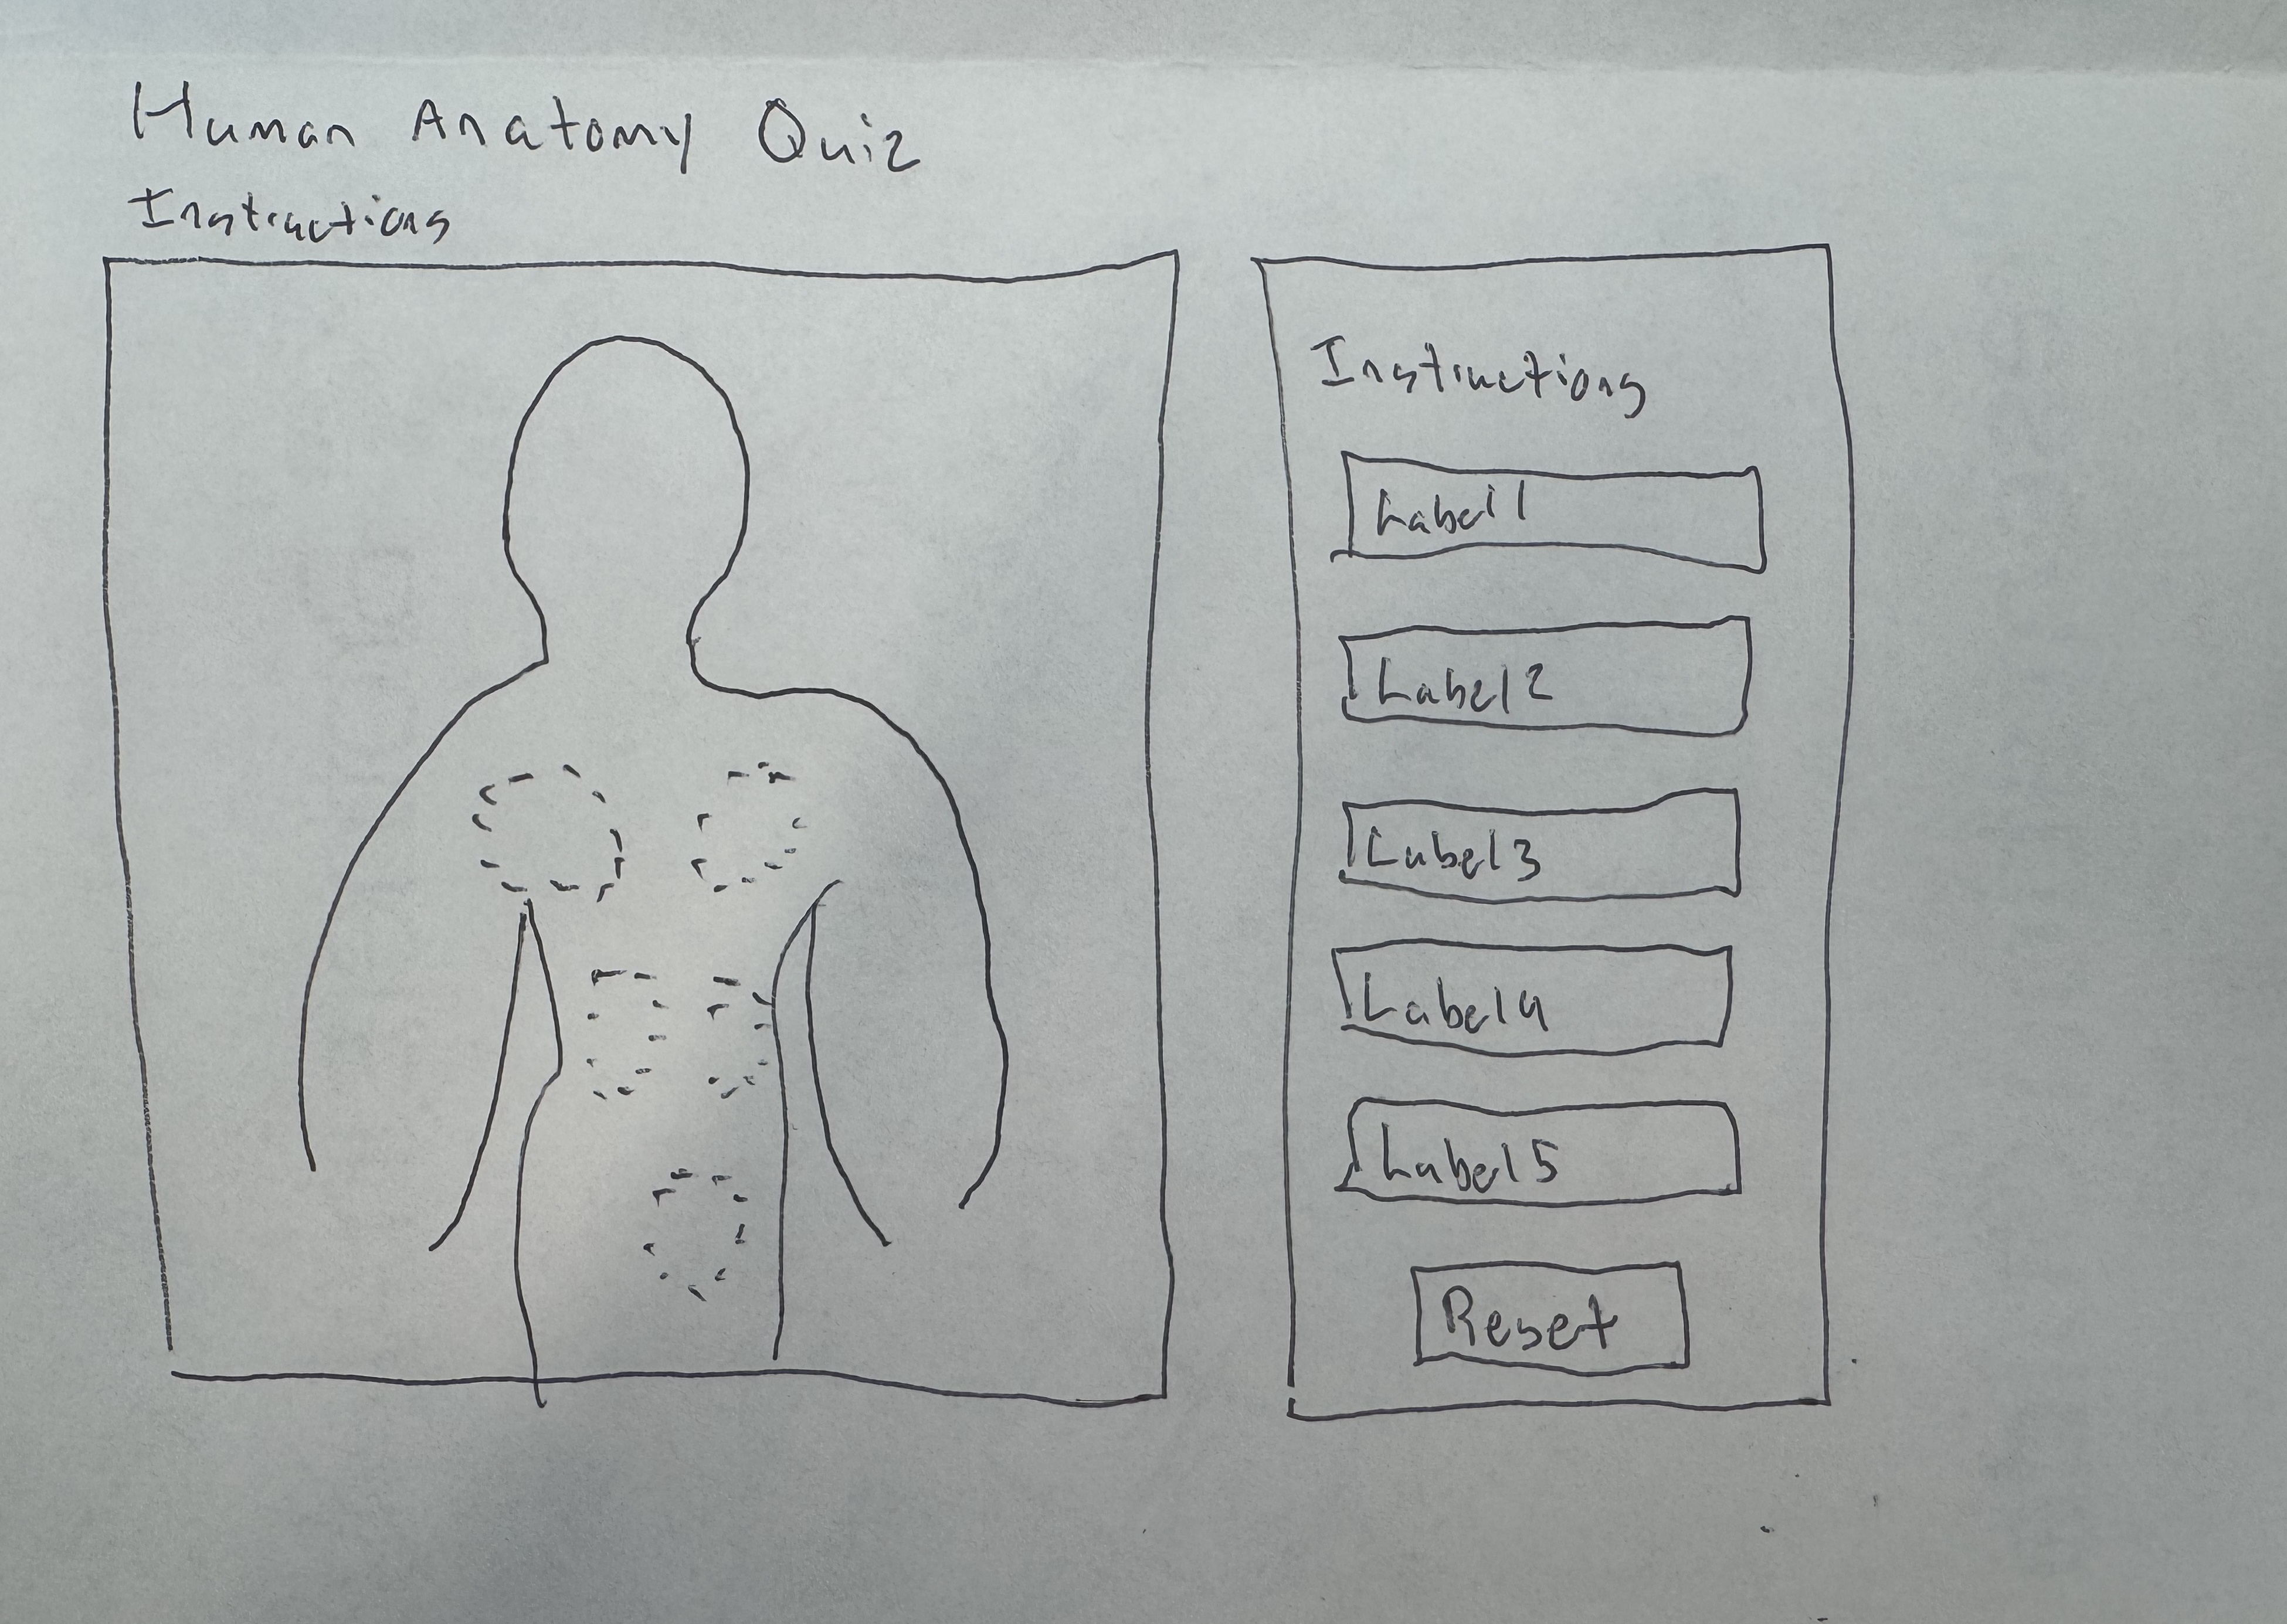 Human Anatomy Quiz
Instructions
Instructions
Label 1
Label 2
Label 3
Label 4
Label 5
Reset